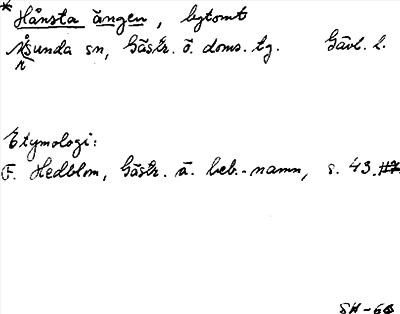 * Hånsta ängen, bytomt
Årsunda sn, Gästr. ö. doms. lg. Gävl. l.
Etymologi:
F. Hedblom, Gästr. ä. beb.-namn, s. 43.
SH-66